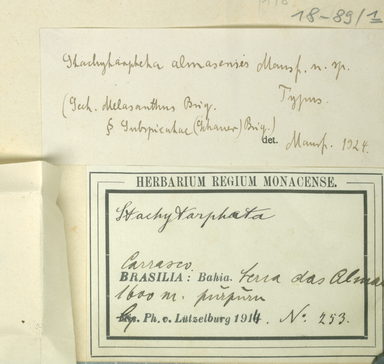 18-89/1
Stachytarpheta almasensis Mansf. n. sp.
Typus.
(Sect. Melasanthus Briq.
§ Subspicatae (Schauer) Briq.)
det. Mansf. 1924.
HERBARIUM REGIUM MONACENSE.
Stachytarpheta
Carrasco
BRASILIA: Bahia. Serra das Almas
1600 m. purpurn
Leg. Ph. v. Lützelburg 1914. No. 253.